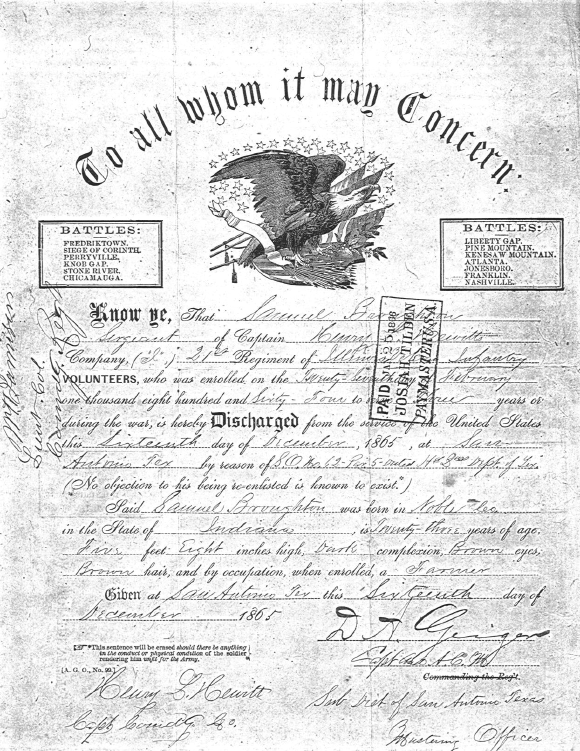 To all whom it may Concern:
BATTLES:
FREDRIKTOWN.
SIEGE OF CORINTH.
PERRYVILLE.
KNOB GAP.
STONE RIVER.
CHICAMAUGA.
BATTLES:
LIBERTY GAP.
PINE MOUNTAIN.
KENESAW MOUNTAIN.
ATLANTA.
JONESBORO.
FRANKLIN.
NASHVILLE.
Know ye, That Samuel
Sergeant of Captain Henry Hewitt
Company, ( ) 21st Regiment of Illinois Infantry
VOLUNTEERS, who was enrolled on the Twenty Seventh day of February
one thousand eight hundred and Sixty-Four to serve Three years or
during the war, is hereby Discharged from the service of the United States
this Sixteenth day of December, 1865, at San
Antonio Tex by reason of S.O. No 62 Dept. of Tex
(No objection to his being re-enlisted is known to exist.*)
Said Samuel Broughton was born in Noble
in the State of Indiana, is Twenty three years of age,
Five feet Eight inches high, Dark complexion, Brown eyes,
Brown hair, and by occupation, when enrolled, a Farmer
Given at San Antonio Tex this Sixteenth day of
December 1865
*This sentence will be erased should there be anything
in the conduct or physical condition of the soldier
rendering him unfit for the Army.
[A. G. O., No. 99.]
Henry L. Hewitt
Capt Comdg Co.
D. Geiger
Capt
Commanding the Reg't.
Sub Dist of San Antonio Texas
Mustering Officer
PAID
JOSIAH TILDEN
PAYMASTER U.S.A.
Lieut Col
Comdg Regt